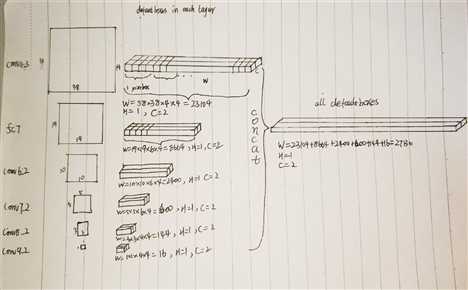 defaultboxes in each layer
conv4_3
38
1 priorbox
W
W = 38×38×4×4 = 23104
H=1, C=2
fc7
19
W=19×19×6×4=8664, H=1, C=2
conv6_2
10
10
W=10×10×6×4=2400, H=1 C=2
conv7_2
5
W=5×5×6×4=600, H=1, C=2
conv8_2
3
W=3×3×4×4=144, H=1, C=2
conv9_2
1
W=1×1×4×4=16, H=1, C=2
concat
all defaultboxes
W=23104+8664+2400+600+144+16=
H=1
C=2